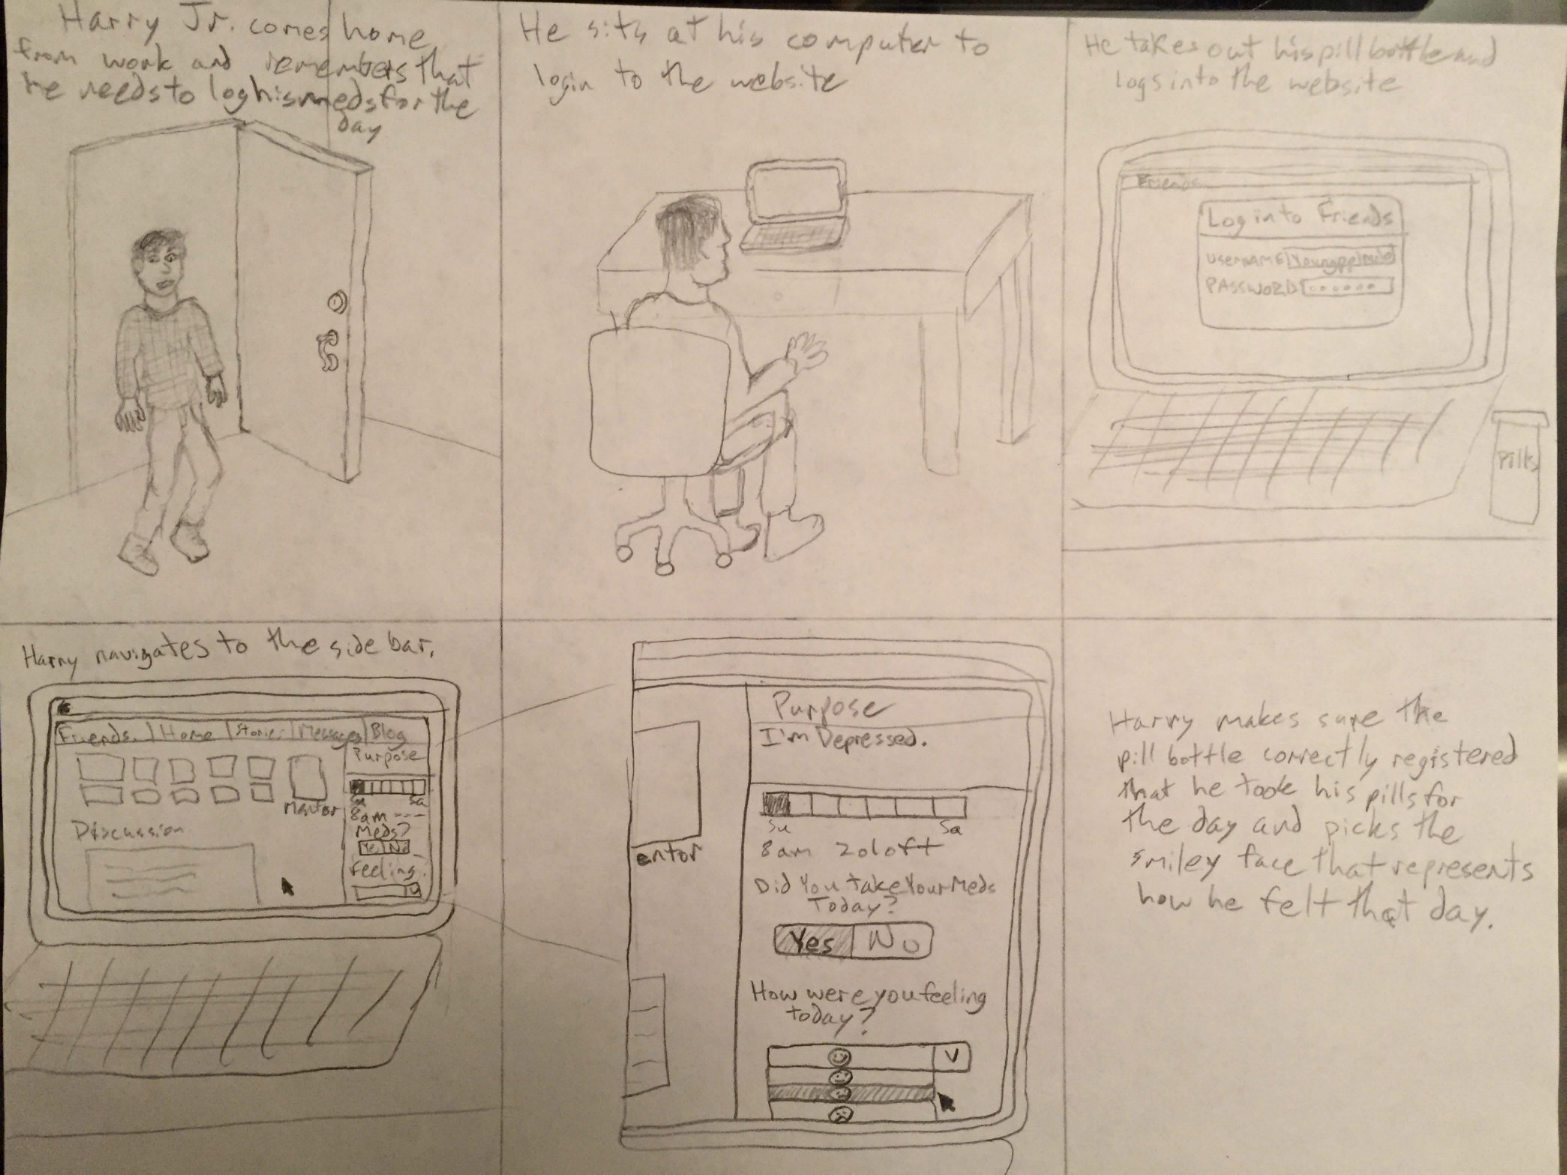 Harry Jr. comes home
from work and remembers that
he needs to log his meds for the
day
He sits at his computer to
login to the website
He takes out his pill bottle and
logs into the website
Friends
Log in to Friends
USERNAME
PASSWORD ......
Pills
Harry navigates to the side bar.
Friends. Home Stories Messages Blog
Purpose
Mentor
Su Sa
8am ----
Meds?
Yes No
Discussion
feeling.
V
Purpose
I'm Depressed.
Su Sa
entor
8am Zoloft
Did You take Your Meds
Today?
Yes No
How were you feeling
today?
V
Harry makes sure the
pill bottle correctly registered
that he took his pills for
the day and picks the
smiley face that represents
how he felt that day.